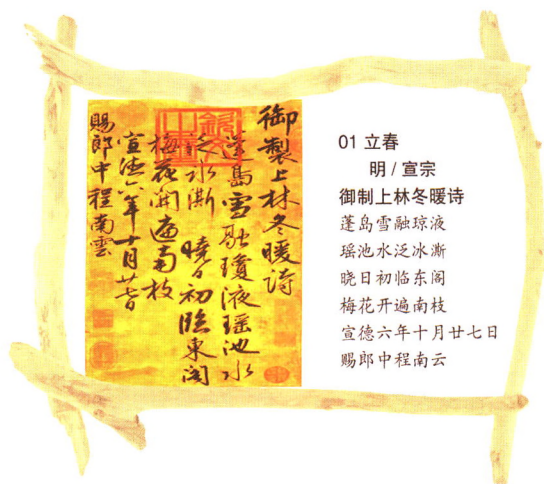 御製上林冬暖詩
蓬島雪融瓊液瑤池水
泛氷澌 曉日初臨東閣
梅花開遍南枝
宣德六年十月廿七日
賜郎中程南雲
01 立春
明 / 宣宗
御制上林冬暖诗
蓬岛雪融琼液
瑶池水泛冰澌
晓日初临东阁
梅花开遍南枝
宣德六年十月廿七日
赐郎中程南云